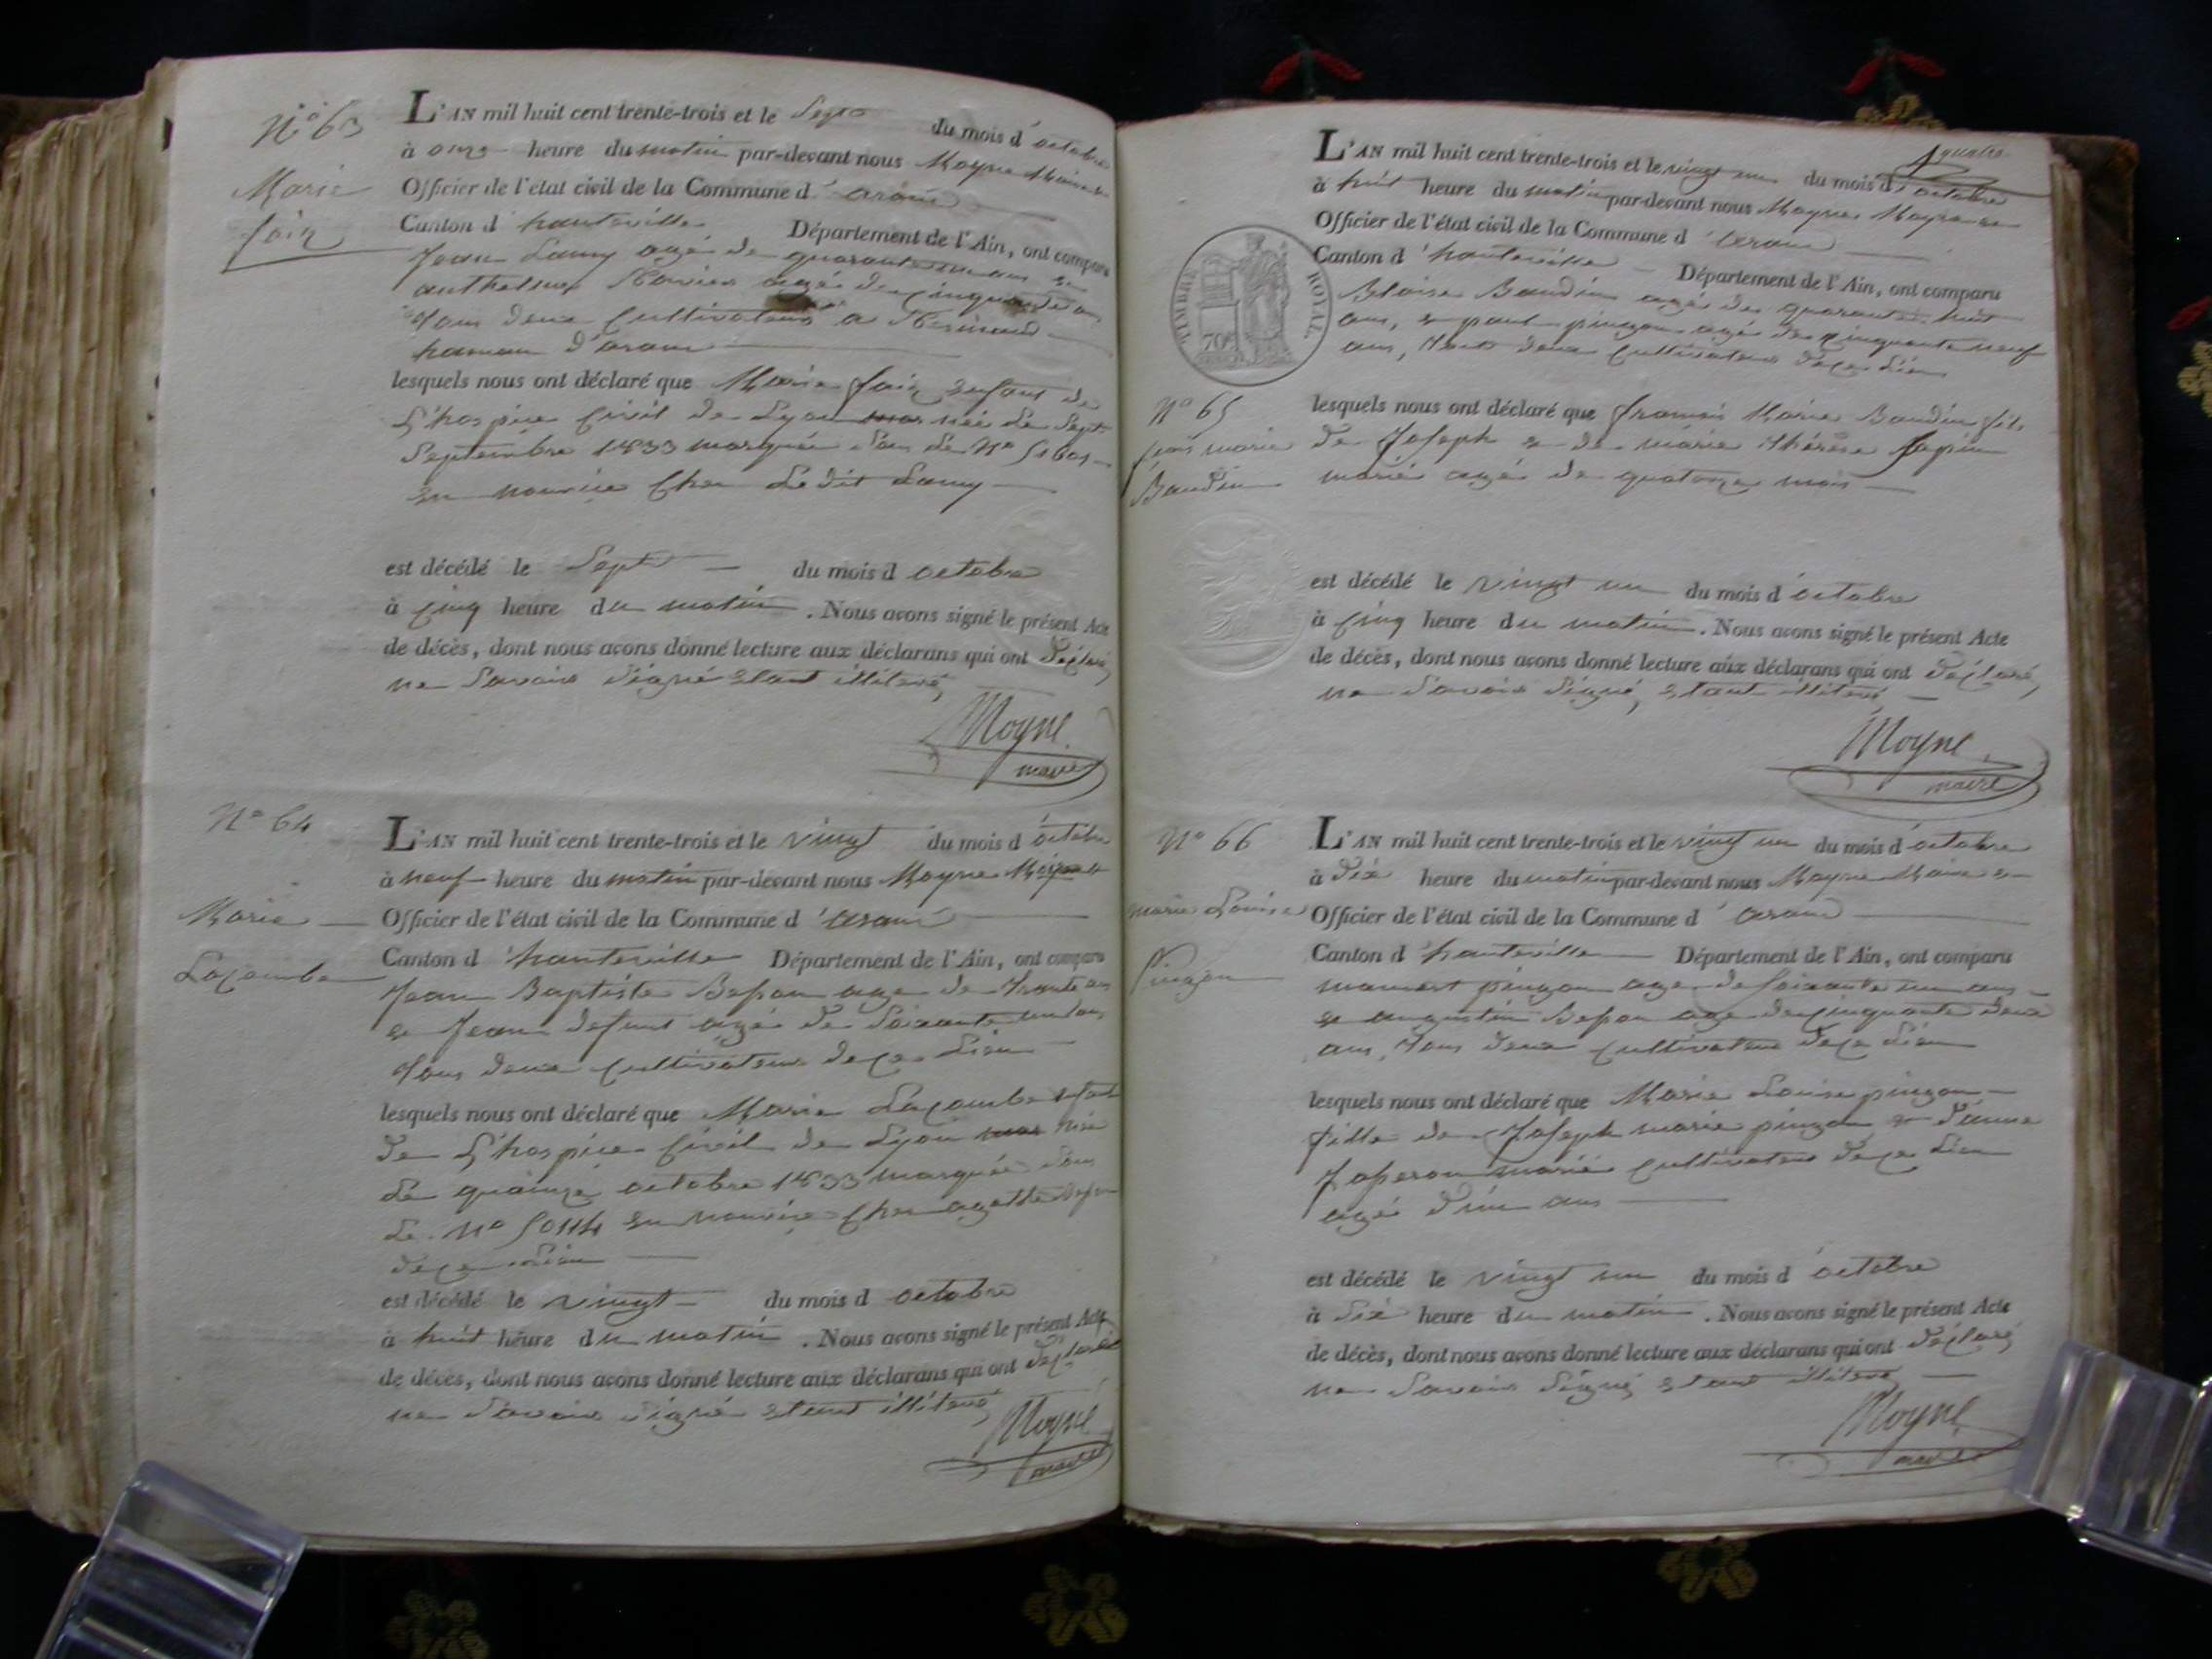 N° 63
Marie
foin
L'AN mil huit cent trente-trois et le Sept du mois d'octobre
à onze heure du matin par-devant nous Moyne Maire &
Officier de l'état civil de la Commune d'aranc
Canton d'hauteville Département de l'Ain, ont comparu
Jean Lamy agé de quarante un ans &
anthelme agé de cinquante ans
tous deux Cultivateurs a
hameau d'aranc
lesquels nous ont déclaré que Marie foin enfant de
L'hospice Civil de Lyon née le Sept
Septembre 1833 marquée sous le N°
en nourice Chez Ledit Lamy
est décédé le Sept du mois d octobre
à cinq heure du matin. Nous avons signé le présent Acte
de décès, dont nous avons donné lecture aux déclarans qui ont déclaré
ne Savoir Signé etant illiteré,
Moyne
maire
N° 64
Marie
Lacombe
L'AN mil huit cent trente-trois et le vingt du mois d'octobre
à neuf heure du matin par-devant nous Moyne &
Officier de l'état civil de la Commune d'aranc
Canton d'hauteville Département de l'Ain, ont comparu
Jean Baptiste Besson age de trante ans
& Jean defunt agé de Soixante un ans
tous deux cultivateurs de ce Lieu
lesquels nous ont déclaré que Marie Lacombe enfant
de L'hospice Civil de Lyon née
Le quainze octobre 1833 marquée sous
Le N° 50114 en nourice Chez agathe Besson
de ce Lieu
est décédé le vingt du mois d octobre
à huit heure du matin. Nous avons signé le présent Acte
de décès, dont nous avons donné lecture aux déclarans qui ont déclaré
ne Savoir Signé etant illiteré
Moyne
maire
quatre
L'AN mil huit cent trente-trois et le vingt un du mois d'octobre
à huit heure du matin par-devant nous Moyne &
Officier de l'état civil de la Commune d'aranc
Canton d'hauteville Département de l'Ain, ont comparu
Blaise Baudin agé de quarante huit
ans, & paul pingon agé de cinquante neuf
ans, tous deux Cultivateurs de ce Lieu
TIMBRE ROYAL
70c
N° 65
frois marie
Baudin
lesquels nous ont déclaré que francois Marie Baudin fils
de Joseph & de marie thérèse Sapin
mariés agé de quatorze mois
est décédé le vingt un du mois d'octobre
à cinq heure du matin. Nous avons signé le présent Acte
de décès, dont nous avons donné lecture aux déclarans qui ont déclaré,
ne Savoir Signé, etant illiteré
Moyne
maire
N° 66
marie Louise
Pingon
L'AN mil huit cent trente-trois et le vingt un du mois d'octobre
à dix heure du matin par-devant nous Moyne Maire &
Officier de l'état civil de la Commune d'aranc
Canton d'hauteville Département de l'Ain, ont comparu
mamert pingon age de Soixante un ans
& augustin Besson age de cinquante deux
ans, tous deux cultivateurs de ce Lieu
lesquels nous ont déclaré que Marie Louise pingon
fille de Joseph marie pingon & d'anne
mariés cultivateurs de ce Lieu
agé d'un ans
est décédé le vingt un du mois d'octobre
à six heure du matin. Nous avons signé le présent Acte
de décès, dont nous avons donné lecture aux déclarans qui ont déclaré
ne Savoir Signé etant illiteré
Moyne
maire